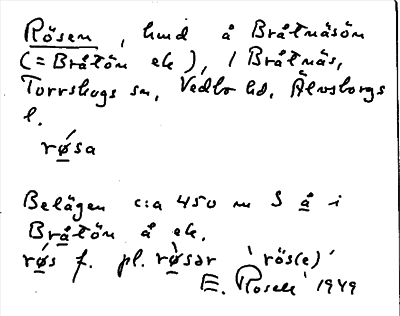 Rösen, lund å Bråtnäsön
(= Bråtön ek), i Bråtnäs,
Torrskogs sn, Vedbo hd, Älvsborgs
l.
rǿsa
Belägen c:a 450 m S å i
Bråtön å ek.
rø̀s f. pl. rø̀sər 'rös(e)'
E. Rosell 1949